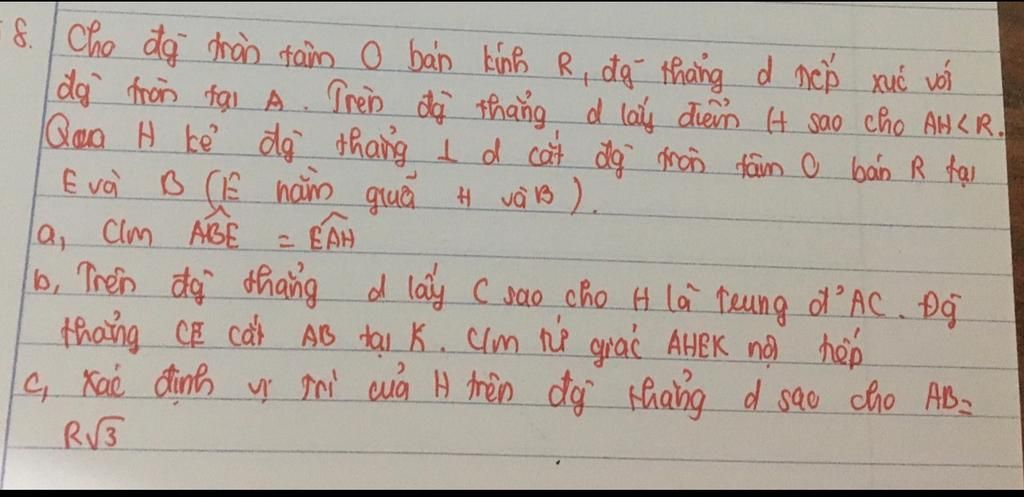 8. Cho đg tròn tâm O bán kính R, đg thẳng d tiếp xúc với
đg tròn tại A. Trên đg thẳng d lấy điểm H sao cho AH<R.
Qua H kẻ đg thẳng ⊥ d cắt đg tròn tâm O bán R tại
E và B (E nằm giữa H và B).
a, C/m ABE = EAH
b, Trên đg thẳng d lấy C sao cho H là trung đ' AC. Đg
thẳng CE cắt AB tại K. C/m tứ giác AHEK nội tiếp
c, Xác định vị trí của H trên đg thẳng d sao cho AB=
R√3